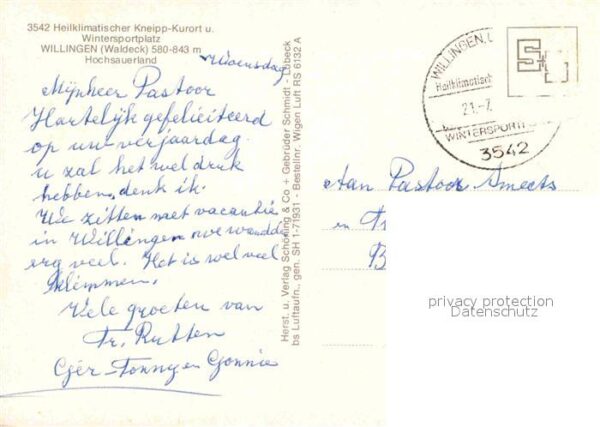 3542 Heilklimatischer Kneipp-Kurort u.
Wintersportplatz
WILLINGEN (Waldeck) 580-843 m
Hochsauerland
Woensdag
Mijnheer Pastoor
Hartelijk gefeliciteerd
op uw verjaardag.
u zal het wel druk
hebben, denk ik.
We zitten met vacantie
in Willingen we wandel
erg veel. Het is wel veel
klimmen.
Vele groeten van
Fr. Rutten
Gér Tonny en Gonnie
Herst. u. Verlag Schöning & Co + Gebrüder Schmidt - Lübeck
bs Luftaufn., gen. SH 1-71931 - Bestellnr. Wigen Luft RS 6132 A
WILLINGEN,
Heilklimatisch
21.-7.
WINTERSPORT
3542
Aan Pastoor Smeets
en Fr
B
privacy protection
Datenschutz